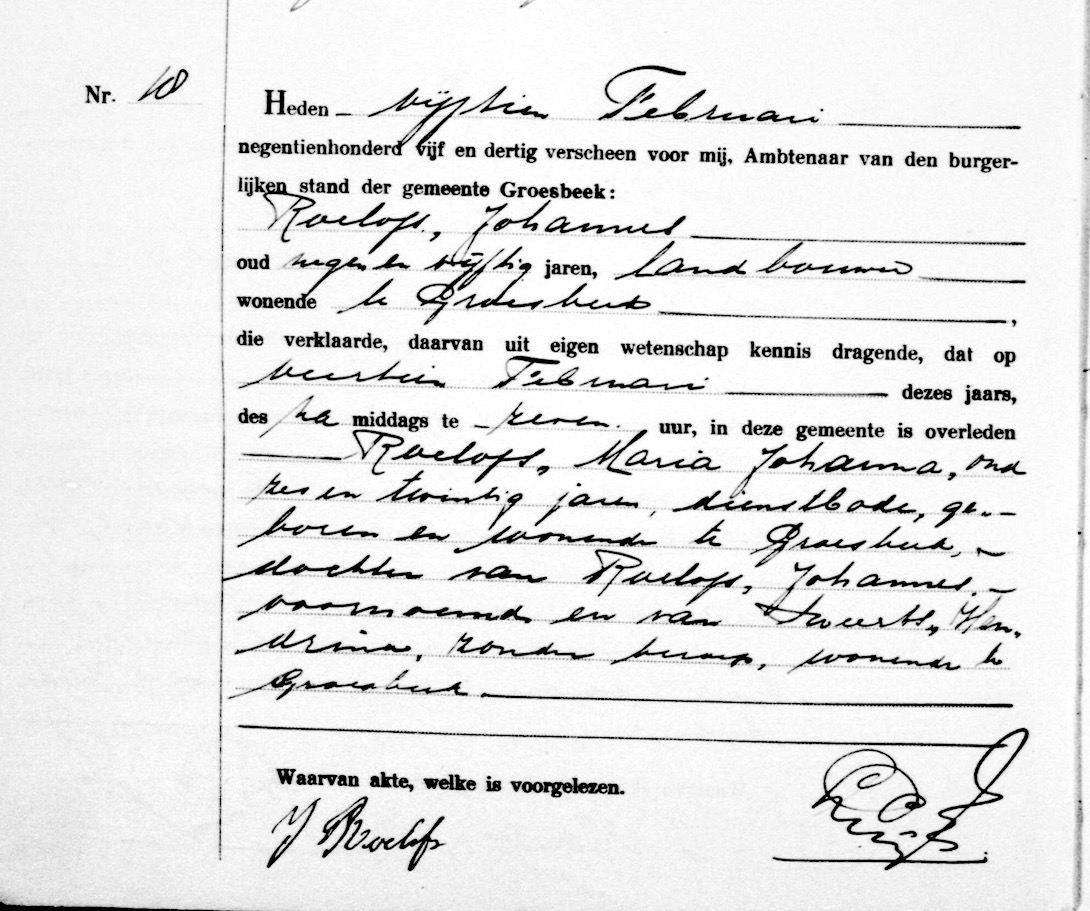 Nr. 10
Heden vijftien Februari
negentienhonderd vijf en dertig verscheen voor mij, Ambtenaar van den burger-
lijken stand der gemeente Groesbeek:
Roelofs, Johannes
oud negen en vijftig jaren, landbouwer
wonende te Groesbeek ,
die verklaarde, daarvan uit eigen wetenschap kennis dragende, dat op
veertien Februari dezes jaars,
des na middags te zeven uur, in deze gemeente is overleden
Roelofs, Maria Johanna, oud
zes en twintig jaren, dienstbode, ge-
boren en wonende te Groesbeek,
dochter van Roelofs, Johannes,
voornoemd en van Sweerts, Hen-
drina, zonder beroep, wonende te
Groesbeek.
Waarvan akte, welke is voorgelezen.
J Roelofs